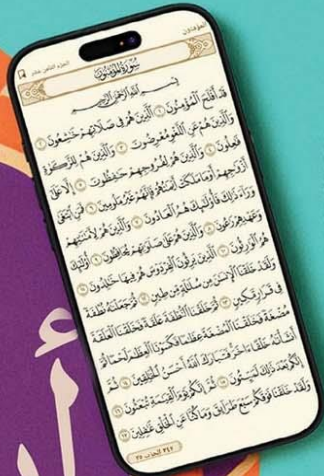 المؤمنون الجزء الثامن عشر
سُورَةُ المُؤْمِنُونَ
بِسْمِ ٱللَّهِ ٱلرَّحْمَٰنِ ٱلرَّحِيمِ
قَدْ أَفْلَحَ ٱلْمُؤْمِنُونَ ١ ٱلَّذِينَ هُمْ فِي صَلَاتِهِمْ خَٰشِعُونَ ٢
وَٱلَّذِينَ هُمْ عَنِ ٱللَّغْوِ مُعْرِضُونَ ٣ وَٱلَّذِينَ هُمْ لِلزَّكَوٰةِ
فَٰعِلُونَ ٤ وَٱلَّذِينَ هُمْ لِفُرُوجِهِمْ حَٰفِظُونَ ٥ إِلَّا عَلَىٰٓ
أَزْوَٰجِهِمْ أَوْ مَا مَلَكَتْ أَيْمَٰنُهُمْ فَإِنَّهُمْ غَيْرُ مَلُومِينَ ٦ فَمَنِ ٱبْتَغَىٰ
وَرَآءَ ذَٰلِكَ فَأُوْلَٰٓئِكَ هُمُ ٱلْعَادُونَ ٧ وَٱلَّذِينَ هُمْ لِأَمَٰنَٰتِهِمْ
وَعَهْدِهِمْ رَٰعُونَ ٨ وَٱلَّذِينَ هُمْ عَلَىٰ صَلَوَٰتِهِمْ يُحَافِظُونَ ٩ أُوْلَٰٓئِكَ
هُمُ ٱلْوَٰرِثُونَ ١٠ ٱلَّذِينَ يَرِثُونَ ٱلْفِرْدَوْسَ هُمْ فِيهَا خَٰلِدُونَ ١١
وَلَقَدْ خَلَقْنَا ٱلْإِنسَٰنَ مِن سُلَٰلَةٍ مِّن طِينٍ ١٢ ثُمَّ جَعَلْنَٰهُ نُطْفَةً
فِي قَرَارٍ مَّكِينٍ ١٣ ثُمَّ خَلَقْنَا ٱلنُّطْفَةَ عَلَقَةً فَخَلَقْنَا ٱلْعَلَقَةَ
مُضْغَةً فَخَلَقْنَا ٱلْمُضْغَةَ عِظَٰمًا فَكَسَوْنَا ٱلْعِظَٰمَ لَحْمًا ثُمَّ
أَنشَأْنَٰهُ خَلْقًا ءَاخَرَ فَتَبَارَكَ ٱللَّهُ أَحْسَنُ ٱلْخَٰلِقِينَ ١٤ ثُمَّ
إِنَّكُم بَعْدَ ذَٰلِكَ لَمَيِّتُونَ ١٥ ثُمَّ إِنَّكُمْ يَوْمَ ٱلْقِيَٰمَةِ تُبْعَثُونَ ١٦
وَلَقَدْ خَلَقْنَا فَوْقَكُمْ سَبْعَ طَرَآئِقَ وَمَا كُنَّا عَنِ ٱلْخَلْقِ غَٰفِلِينَ ١٧
٣٤٢ الحزب ٣٥